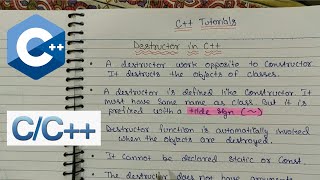 C++ Tutorials
Destructor in C++
C++
• A destructor work opposite to Constructor.
It destructs the objects of classes.
• A destructor is defined like Constructor. It
must have same name as class. But it is
prefixed with a tilde sign (~)
C/C++
Destructor function is automatically invoked
when the objects are destroyed.
• It cannot be declared static or Const.
• The destructor does not have arguments